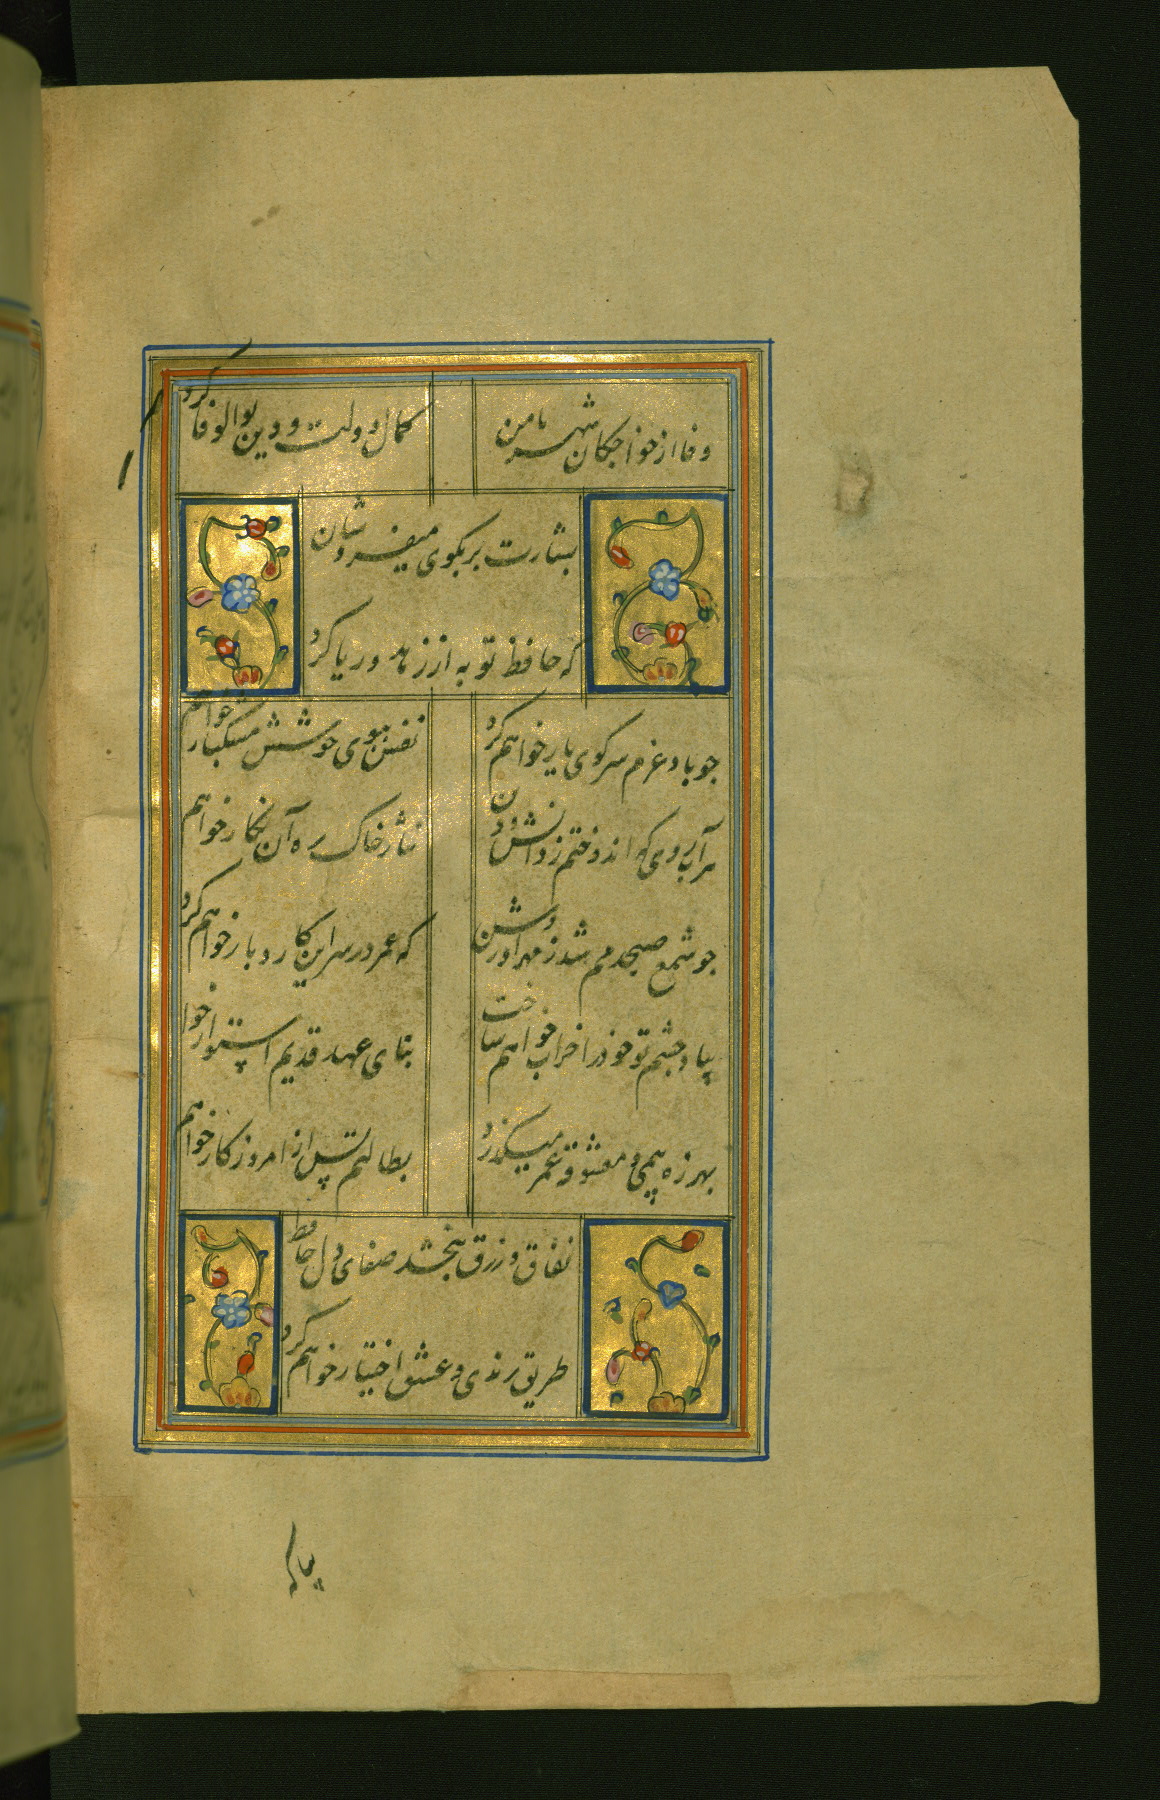 وفا از خواجکان شهر با من
کمال دولت و دین بوالوفا کرد
بشارت بر بکوی میفروشان
که حافظ توبه از زهد و ریا کرد
جو باد عزم سر کوی یار خواهم کرد
نفس ببوی خوشش مشکبار خواهم
هر آبروی که اندوختم ز دانش و دین
نثار خاک ره آن نکار خواهم
جو شمع صبحدمم شد ز مهر او روشن
که عمر در سر این کار و بار خواهم کرد
بیاد جشم تو خود را خراب خواهم ساخت
بنای عهد قدیم استوار خوا
بهرزه بی می و معشوق عمر میکذرد
بطالتم پس از امروز کار خواهم
نفاق و زرق نبخشد صفای دل حافظ
طریق رندی و عشق اختیار خواهم کرد
بیا که